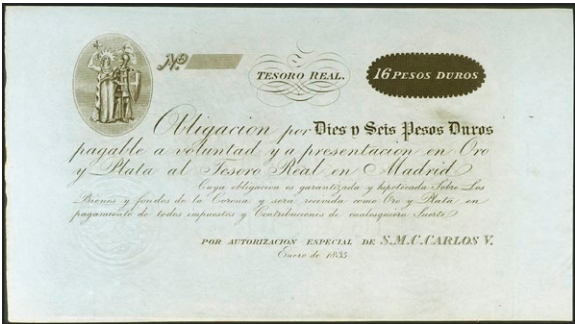 Nº
TESORO REAL.
16 PESOS DUROS
Obligacion por Dies y Seis Pesos Duros
pagable a voluntad y a presentacion en Oro
y Plata al Tesoro Real en Madrid
Cuya obligacion es garantizada y hipotecada Sobre Los
Bienes y fondos de la Corona y sera recivida como Oro y Plata en
pagamiento de todos impuestos y Contribuciones de cualesquiera Suerte
POR AUTORIZACION ESPECIAL DE S.M.C. CARLOS V.
Enero de 1835